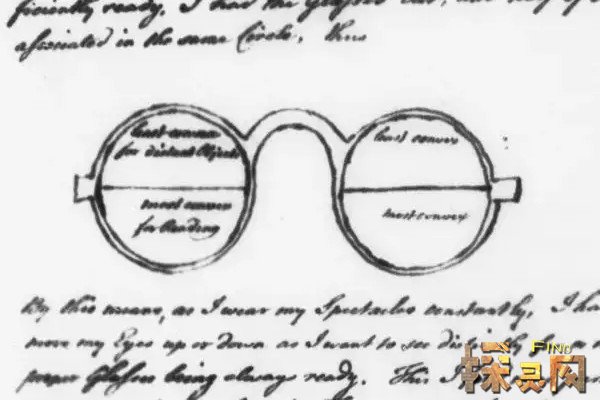 ficiently ready. I had the Glasses cut, and half of
associated in the same Circle, thus
least convex
for distant Objects
least convex
most convex
for Reading
most convex
By this means, as I wear my Spectacles constantly, I have
move my Eyes up or down as I want to see distinctly far or n
proper Glasses being always ready. This I
FIND
探灵网